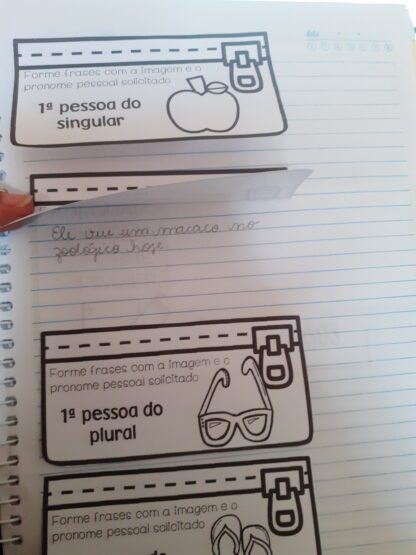 data
Forme frases com a imagem e o
pronome pessoal solicitado
1ª pessoa do
singular
Ele viu um macaco no
zoológico hoje
Forme frases com a imagem e o
pronome pessoal solicitado
1ª pessoa do
plural
Forme frases com a imagem e o
pronome pessoal solicitado